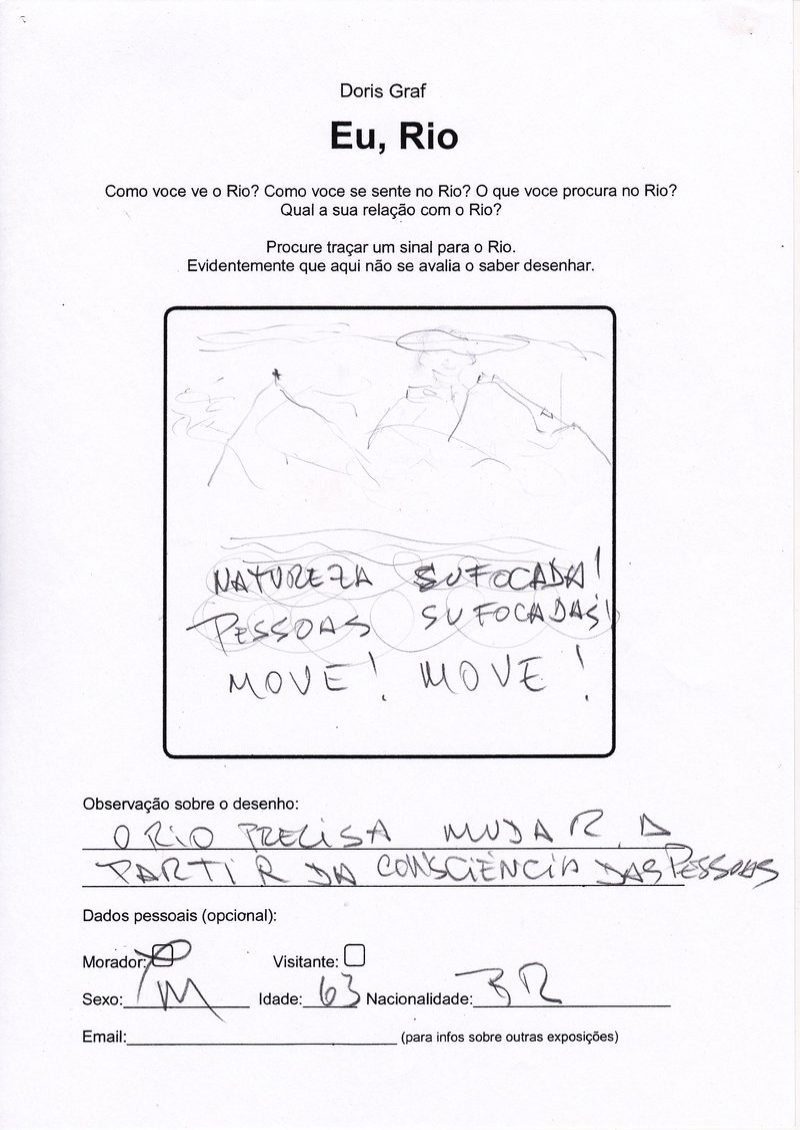 Doris Graf
Eu, Rio
Como voce ve o Rio? Como voce se sente no Rio? O que voce procura no Rio?
Qual a sua relação com o Rio?
Procure traçar um sinal para o Rio.
Evidentemente que aqui não se avalia o saber desenhar.
NATUREZA SUFOCADA!
PESSOAS SUFOCADAS!
MOVE! MOVE!
Observação sobre o desenho:
O RIO PRECISA MUDAR A
PARTIR DA CONSCIÊNCIA DAS PESSOAS
Dados pessoais (opcional):
Morador: Visitante:
Sexo: M Idade: 63 Nacionalidade: BR
Email: (para infos sobre outras exposições)